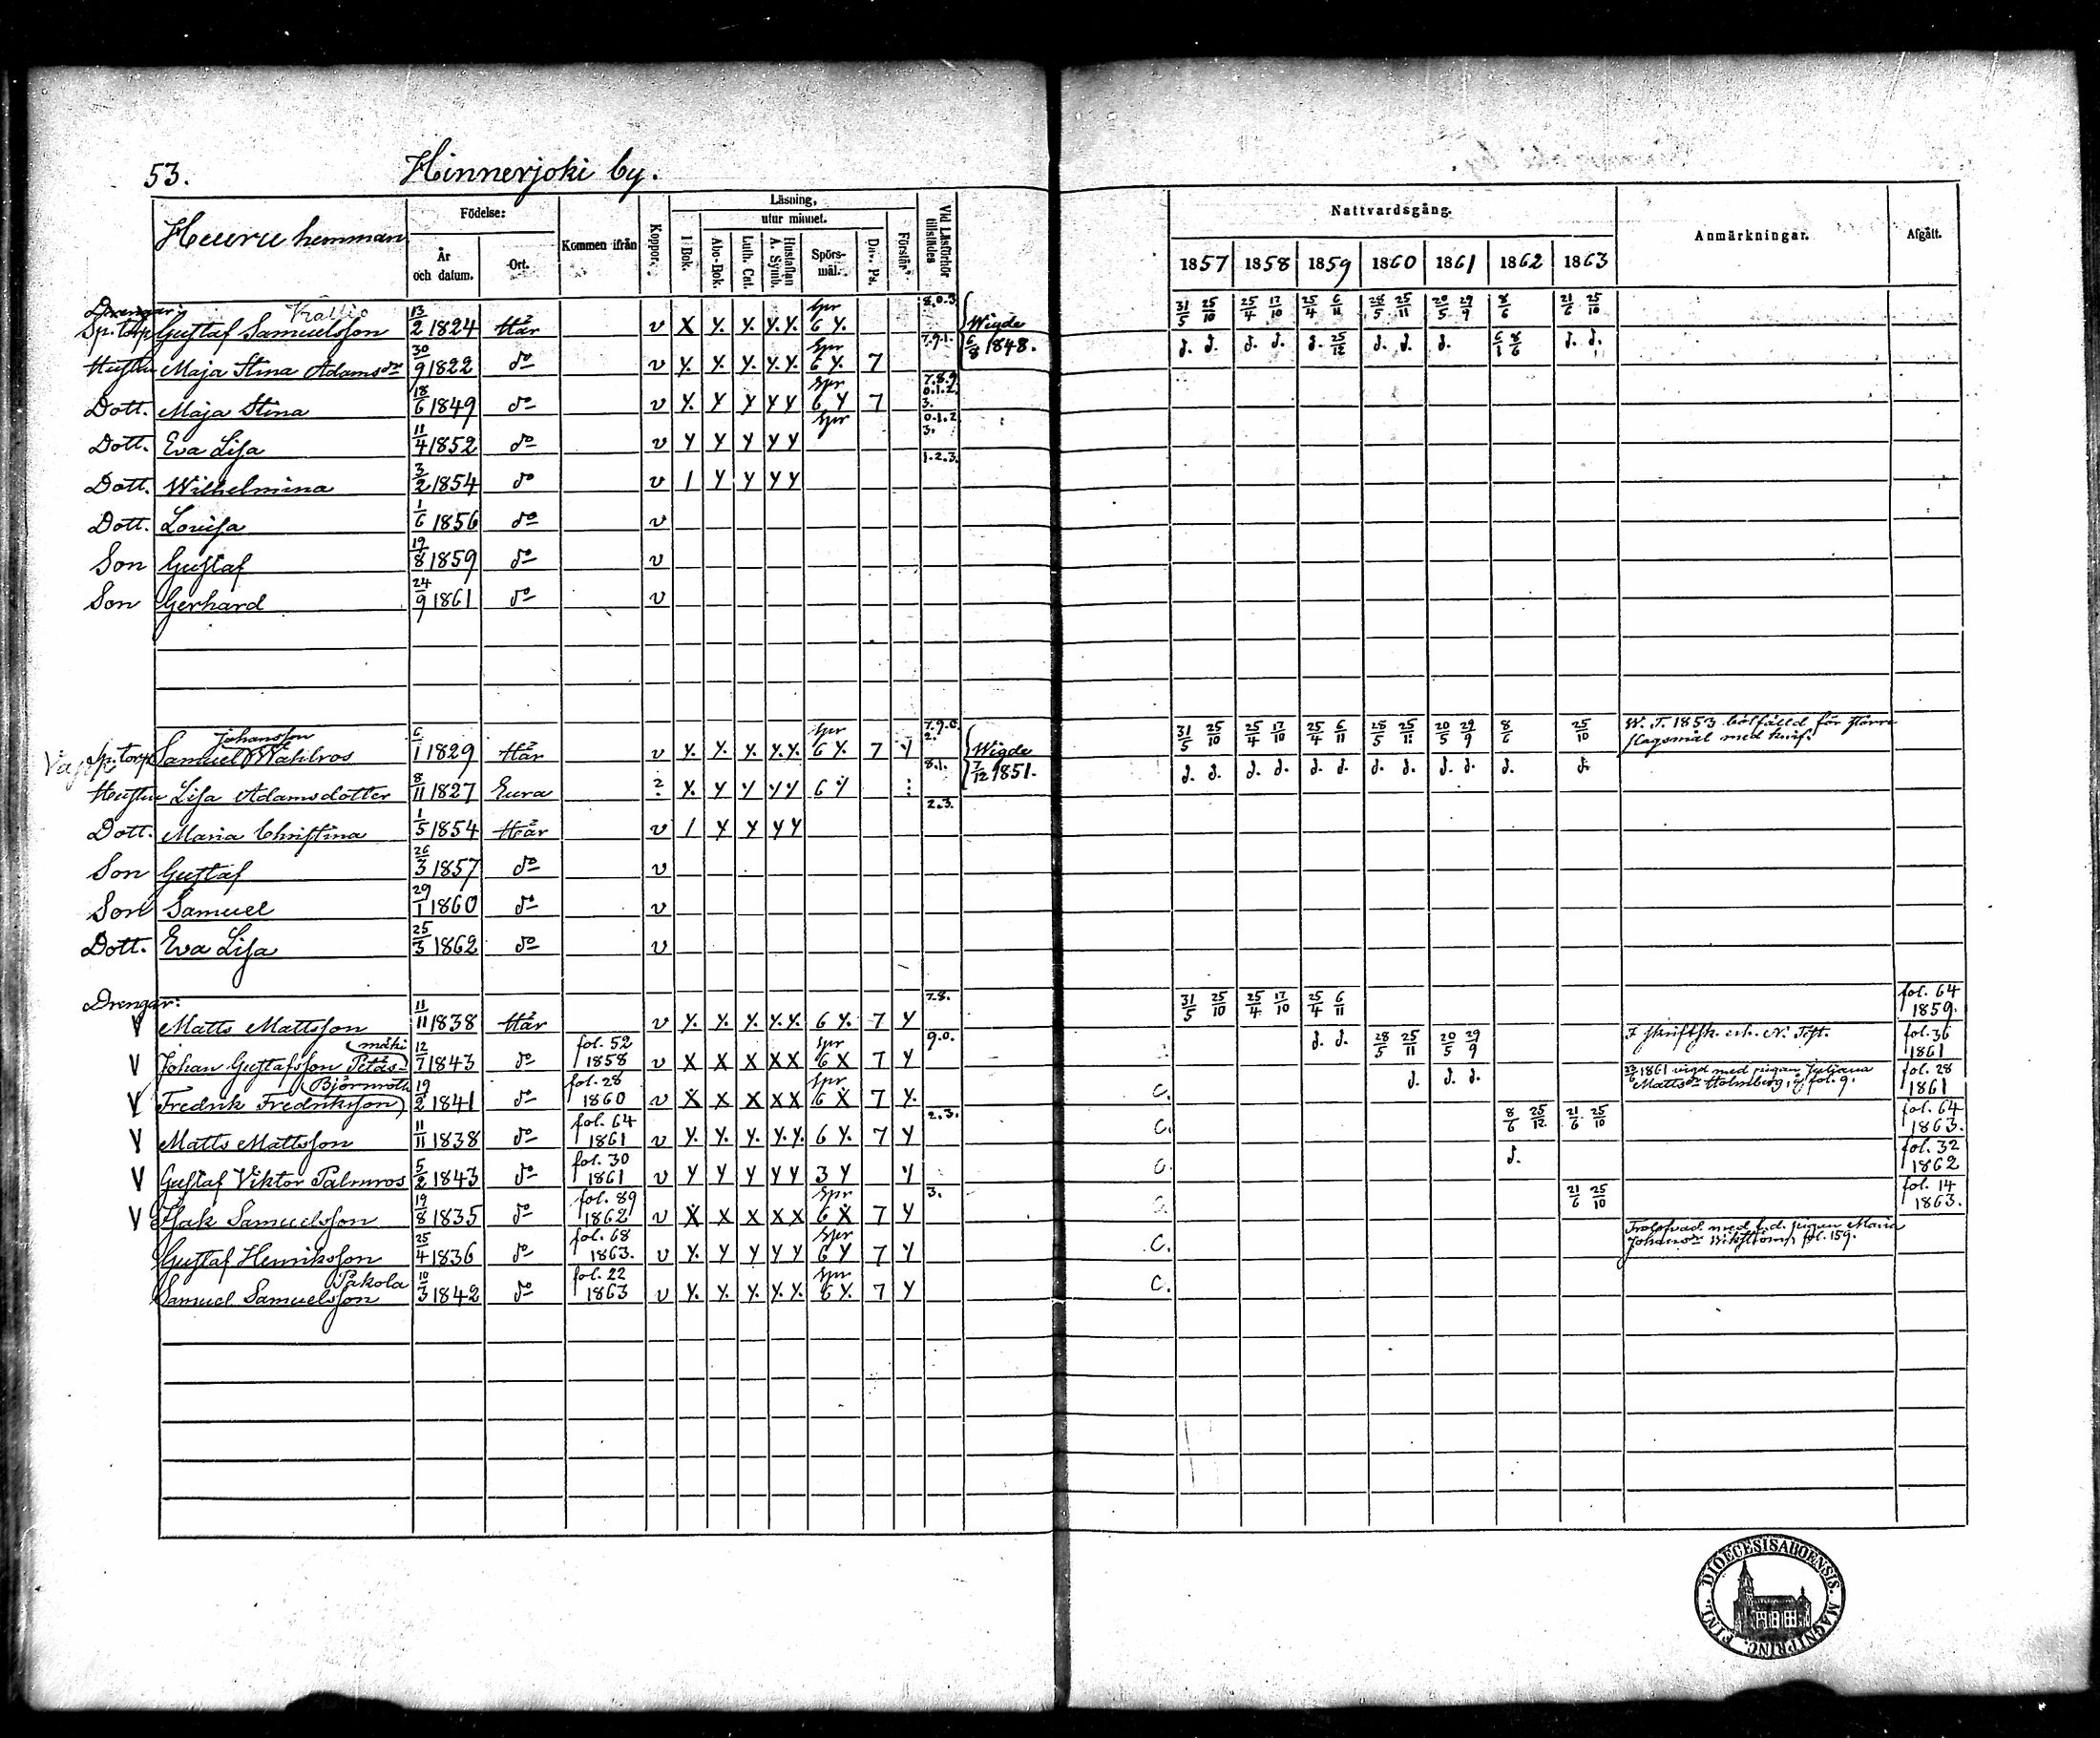 53. Hinnerjoki by.
Heuru hemman Födelse: År och datum. Ort. Kommen ifrån Koppor. Läsning, I Bok. utur minnet. Abo-Bok. Luth. Cat. Hustaflan A. Symb. Spörs-mål. Dav. Ps. Förstår. Vid Läsförhör tillstädes Nattvardsgång. 1857 1858 1859 1860 1861 1862 1863 Anmärkningar. Afgått.
Kallio
Sp. torp Gustaf Samuelsson 13/2 1824 Här v X Y. Y. Y. Y. Spr 6 Y. 8.0.3 Wigde 6/8 1848. 31/5 25/10 25/4 17/10 25/4 6/11 28/5 25/11 20/5 29/9 8/6 21/6 25/10
Hustru Maja Stina Adamsdr 30/9 1822 do v Y. Y. Y. Y. Y. Spr 6 Y. 7 7.9.1. d. d. d. d. d. 25/12 d. d. d. 6/1 8/6 d. d.
Dott. Maja Stina 18/6 1849 do v Y. Y Y Y Y Spr 6 Y 7 7.8.9 0.1.2. 3.
Dott. Eva Lisa 11/4 1852 do v Y Y Y Y Y Spr 0.1.2 3.
Dott. Wilhelmina 3/2 1854 do v 1 Y Y Y Y 1.2.3.
Dott. Lovisa 1/6 1856 do v
Son Gustaf 19/8 1859 do v
Son Gerhard 24/9 1861 do v
Johansson
Sp. torp Samuel Wahlros 6/1 1829 Här v Y. Y. Y. Y. Y. Spr 6 Y. 7 Y 7.9.0. 2. Wigde 7/12 1851. 31/5 25/10 25/4 17/10 25/4 6/11 28/5 25/11 20/5 29/9 8/6 25/10 W. T. 1853 botfälld för större slagsmål med knif.
Hustru Lisa Adamsdotter 8/11 1827 Eura ? Y. Y Y Y Y 6 Y 8.1. d. d. d. d. d. d. d. d. d. d. d. d.
Dott. Maria Christina 1/5 1854 Här v 1 Y Y Y Y 2.3.
Son Gustaf 26/3 1857 do v
Son Samuel 29/1 1860 do v
Dott. Eva Lisa 25/3 1862 do v
Drengar:
V Matts Mattsson 11/11 1838 Här v Y. Y. Y. Y. Y. 6 Y. 7 Y 7.8. 31/5 25/10 25/4 17/10 25/4 6/11 fol. 64 1859.
V Johan Gustafsson Petäs-mäki 12/7 1843 do fol. 52 1858 v X X X X X Spr 6 X 7 Y 9.0. d. d. 28/5 25/11 20/5 29/9 fol. 36 1861
V Fredrik Fredriksson Björnroth 19/2 1841 do fol. 28 1860 v X X X X X Spr 6 X 7 Y. C. d. d. d. 1861 vigd med pigan Juliana Mattsdr Holmberg, fol. 9. fol. 28 1861
V Matts Mattsson 11/11 1838 do fol. 64 1861 v Y. Y. Y. Y. Y. 6 Y. 7 Y 2.3. C. 8/6 25/12 21/6 25/10 fol. 64 1863.
V Gustaf Viktor Palmros 5/2 1843 do fol. 30 1861 v Y Y Y Y Y 3 Y Y C. d. fol. 32 1862
V Isak Samuelsson 19/8 1835 do fol. 89 1862 v X X X X X Spr 6 X 7 Y 3. 21/6 25/10 fol. 14 1863.
Gustaf Henriksson 25/4 1836 do fol. 68 1863. v Y. Y Y Y Y Spr 6 Y 7 Y C. Trolofvad med pigan Maria Johansdr Wikström, fol. 159.
Samuel Samuelsson Pakola 10/3 1842 do fol. 22 1863 v Y. Y. Y. Y. Y. Spr 6 Y. 7 Y C.
DIOECESIS ABOENSIS. MAGNI PRINC. FINL.